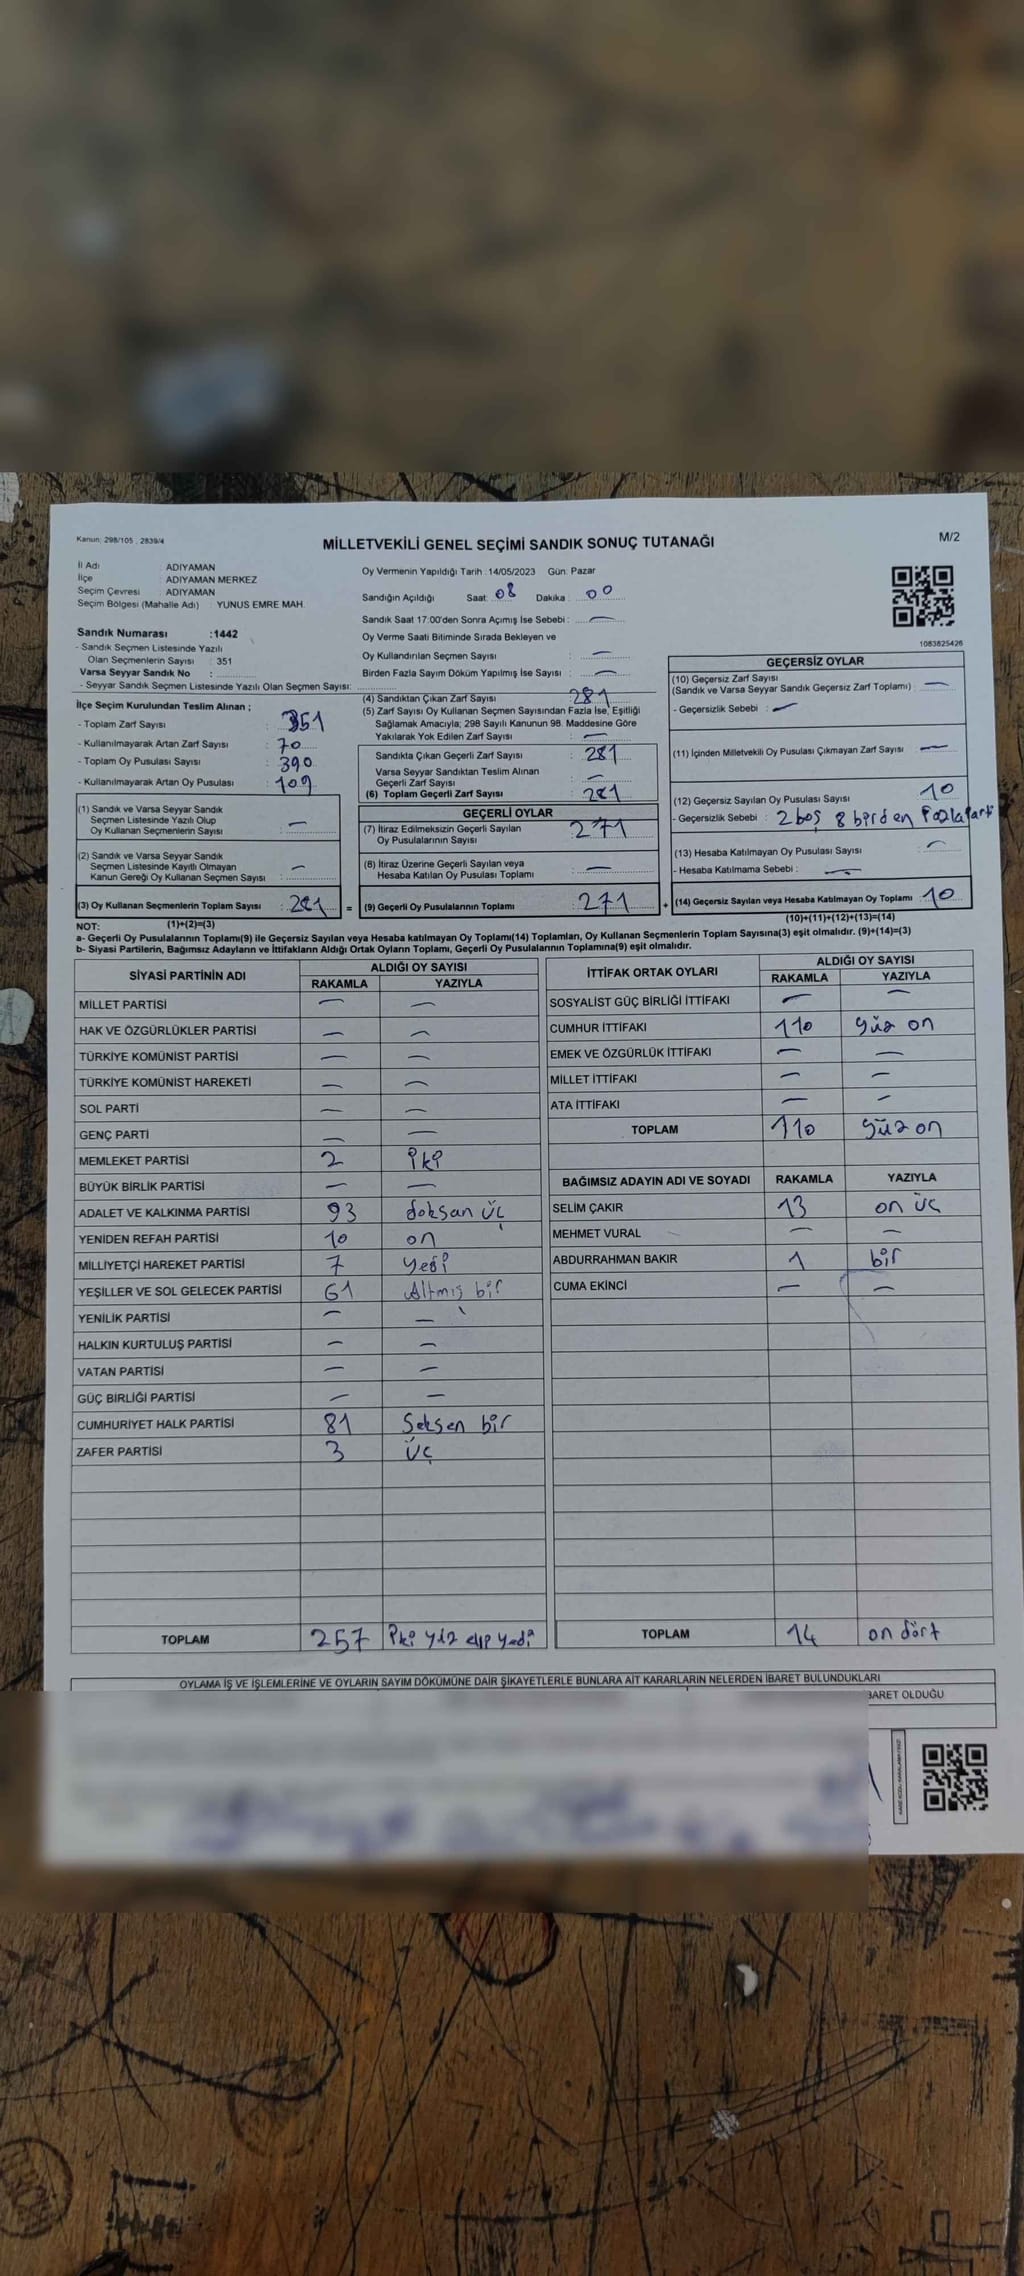 Kanun: 298/105 , 2839/4
MİLLETVEKİLİ GENEL SEÇİMİ SANDIK SONUÇ TUTANAĞI
M/2
İl Adı : ADIYAMAN
İlçe : ADIYAMAN MERKEZ
Seçim Çevresi : ADIYAMAN
Seçim Bölgesi (Mahalle Adı) : YUNUS EMRE MAH.
Sandık Numarası :1442
- Sandık Seçmen Listesinde Yazılı
Olan Seçmenlerin Sayısı : 351
Varsa Seyyar Sandık No :
- Seyyar Sandık Seçmen Listesinde Yazılı Olan Seçmen Sayısı:
İlçe Seçim Kurulundan Teslim Alınan ;
- Toplam Zarf Sayısı : 351
- Kullanılmayarak Artan Zarf Sayısı : 70
- Toplam Oy Pusulası Sayısı : 390
- Kullanılmayarak Artan Oy Pusulası : 109
(1) Sandık ve Varsa Seyyar Sandık
Seçmen Listesinde Yazılı Olup
Oy Kullanan Seçmenlerin Sayısı : —
(2) Sandık ve Varsa Seyyar Sandık
Seçmen Listesinde Kayıtlı Olmayan
Kanun Gereği Oy Kullanan Seçmen Sayısı : —
(3) Oy Kullanan Seçmenlerin Toplam Sayısı : 281 =
(1)+(2)=(3)
Oy Vermenin Yapıldığı Tarih : 14/05/2023 Gün: Pazar
Sandığın Açıldığı Saat: 08 Dakika : 00
Sandık Saat 17:00'den Sonra Açımış İse Sebebi : —
Oy Verme Saati Bitiminde Sırada Bekleyen ve
Oy Kullandırılan Seçmen Sayısı : —
Birden Fazla Sayım Döküm Yapılmış İse Sayısı : —
(4) Sandıktan Çıkan Zarf Sayısı : 281
(5) Zarf Sayısı Oy Kullanan Seçmen Sayısından Fazla İse, Eşitliği
Sağlamak Amacıyla; 298 Sayılı Kanunun 98. Maddesine Göre
Yakılarak Yok Edilen Zarf Sayısı : —
Sandıkta Çıkan Geçerli Zarf Sayısı : 281
Varsa Seyyar Sandıktan Teslim Alınan
Geçerli Zarf Sayısı : —
(6) Toplam Geçerli Zarf Sayısı : 281
GEÇERLİ OYLAR
(7) İtiraz Edilmeksizin Geçerli Sayılan
Oy Pusulalarının Sayısı : 271
(8) İtiraz Üzerine Geçerli Sayılan veya
Hesaba Katılan Oy Pusulası Toplamı : —
(9) Geçerli Oy Pusulalarının Toplamı : 271 +
1083825426
GEÇERSİZ OYLAR
(10) Geçersiz Zarf Sayısı
(Sandık ve Varsa Seyyar Sandık Geçersiz Zarf Toplamı) : —
- Geçersizlik Sebebi : —
(11) İçinden Milletvekili Oy Pusulası Çıkmayan Zarf Sayısı : —
(12) Geçersiz Sayılan Oy Pusulası Sayısı : 10
- Geçersizlik Sebebi : 2 boş 8 birden fazla parti
(13) Hesaba Katılmayan Oy Pusulası Sayısı : —
- Hesaba Katılmama Sebebi : —
(14) Geçersiz Sayılan veya Hesaba Katılmayan Oy Toplamı : 10
(10)+(11)+(12)+(13)=(14)
NOT:
a- Geçerli Oy Pusulalarının Toplamı(9) ile Geçersiz Sayılan veya Hesaba katılmayan Oy Toplamı(14) Toplamları, Oy Kullanan Seçmenlerin Toplam Sayısına(3) eşit olmalıdır. (9)+(14)=(3)
b- Siyasi Partilerin, Bağımsız Adayların ve İttifakların Aldığı Ortak Oyların Toplamı, Geçerli Oy Pusulalarının Toplamına(9) eşit olmalıdır.
SİYASİ PARTİNİN ADI ALDIĞI OY SAYISI
RAKAMLA YAZIYLA
MİLLET PARTİSİ — —
HAK VE ÖZGÜRLÜKLER PARTİSİ — —
TÜRKİYE KOMÜNİST PARTİSİ — —
TÜRKİYE KOMÜNİST HAREKETİ — —
SOL PARTİ — —
GENÇ PARTİ — —
MEMLEKET PARTİSİ 2 iki
BÜYÜK BİRLİK PARTİSİ — —
ADALET VE KALKINMA PARTİSİ 93 doksan üç
YENİDEN REFAH PARTİSİ 10 on
MİLLİYETÇİ HAREKET PARTİSİ 7 yedi
YEŞİLLER VE SOL GELECEK PARTİSİ 61 Altmış bir
YENİLİK PARTİSİ — —
HALKIN KURTULUŞ PARTİSİ — —
VATAN PARTİSİ — —
GÜÇ BİRLİĞİ PARTİSİ — —
CUMHURİYET HALK PARTİSİ 81 Seksen bir
ZAFER PARTİSİ 3 üç
TOPLAM 257 iki yüz elli yedi
İTTİFAK ORTAK OYLARI ALDIĞI OY SAYISI
RAKAMLA YAZIYLA
SOSYALİST GÜÇ BİRLİĞİ İTTİFAKI — —
CUMHUR İTTİFAKI 110 yüz on
EMEK VE ÖZGÜRLÜK İTTİFAKI — —
MİLLET İTTİFAKI — —
ATA İTTİFAKI — —
TOPLAM 110 yüz on
BAĞIMSIZ ADAYIN ADI VE SOYADI RAKAMLA YAZIYLA
SELİM ÇAKIR 13 on üç
MEHMET VURAL — —
ABDURRAHMAN BAKIR 1 bir
CUMA EKİNCİ — —
TOPLAM 14 on dört
OYLAMA İŞ VE İŞLEMLERİNE VE OYLARIN SAYIM DÖKÜMÜNE DAİR ŞİKAYETLERLE BUNLARA AİT KARARLARIN NELERDEN İBARET BULUNDUKLARI
BARET OLDUĞU